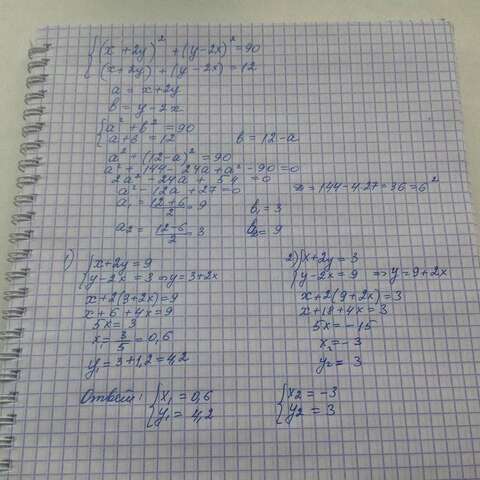 {(x + 2y)² + (y - 2x)² = 90
{(x + 2y) + (y - 2x) = 12
a = x + 2y
b = y - 2x
{a² + b² = 90
{a + b = 12   b = 12 - a
a² + (12 - a)² = 90
a² + 144 - 24a + a² - 90 = 0
2a² - 24a + 54 = 0
a² - 12a + 27 = 0   D = 144 - 4·27 = 36 = 6²
a₁ = (12 + 6)/2 = 9   b₁ = 3
a₂ = (12 - 6)/2 = 3   b₂ = 9
1) {x + 2y = 9
{y - 2x = 3 ⇒ y = 3 + 2x
x + 2(3 + 2x) = 9
x + 6 + 4x = 9
5x = 3
x₁ = 3/5 = 0,6
y₁ = 3 + 1,2 = 4,2
2) {x + 2y = 3
{y - 2x = 9 ⇒ y = 9 + 2x
x + 2(9 + 2x) = 3
x + 18 + 4x = 3
5x = -15
x₂ = -3
y₂ = 3
Ответ: {x₁ = 0,6   {x₂ = -3
{y₁ = 4,2   {y₂ = 3